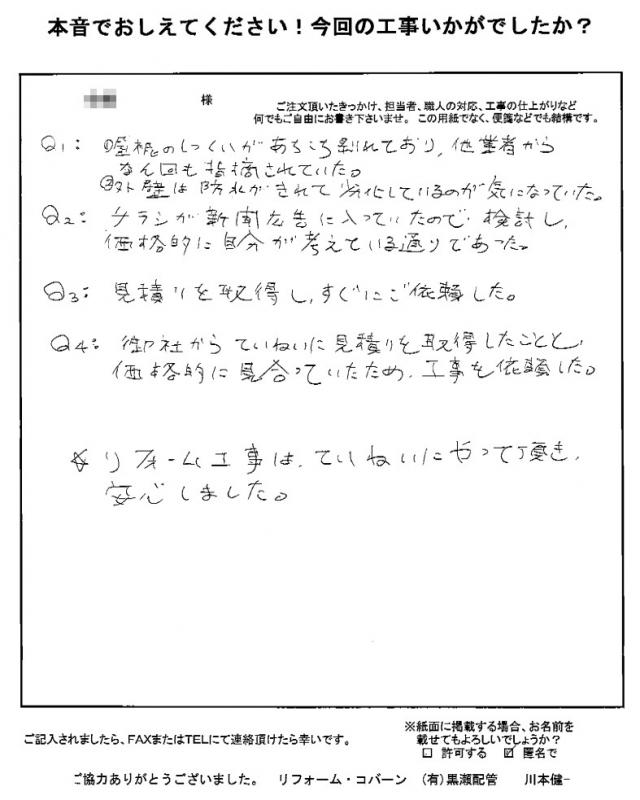 本音でおしえてください！今回の工事いかがでしたか？
様
ご注文頂いたきっかけ、担当者、職人の対応、工事の仕上がりなど
何でもご自由にお書き下さいませ。この用紙でなく、便箋などでも結構です。
Q1: ①屋根のしっくいがあちこち剥れており、他業者から
なん回も指摘されていた。
②外壁は防水がきれて劣化しているのが気になっていた。
Q2: チラシが新聞広告に入っていたので検討し、
価格的に自分が考えている通りであった。
Q3: 見積りを取得し、すぐにご依頼した。
Q4: 御社からていねいに見積りを取得したことと、
価格的に見合っていたため、工事を依頼した。
☆リフォーム工事は、ていねいにやって頂き、
安心しました。
ご記入されましたら、FAXまたはTELにて連絡頂けたら幸いです。
※紙面に掲載する場合、お名前を
載せてもよろしいでしょうか？
□ 許可する ☑ 匿名で
ご協力ありがとうございました。 リフォーム・コバーン (有)黒瀬配管 川本健一